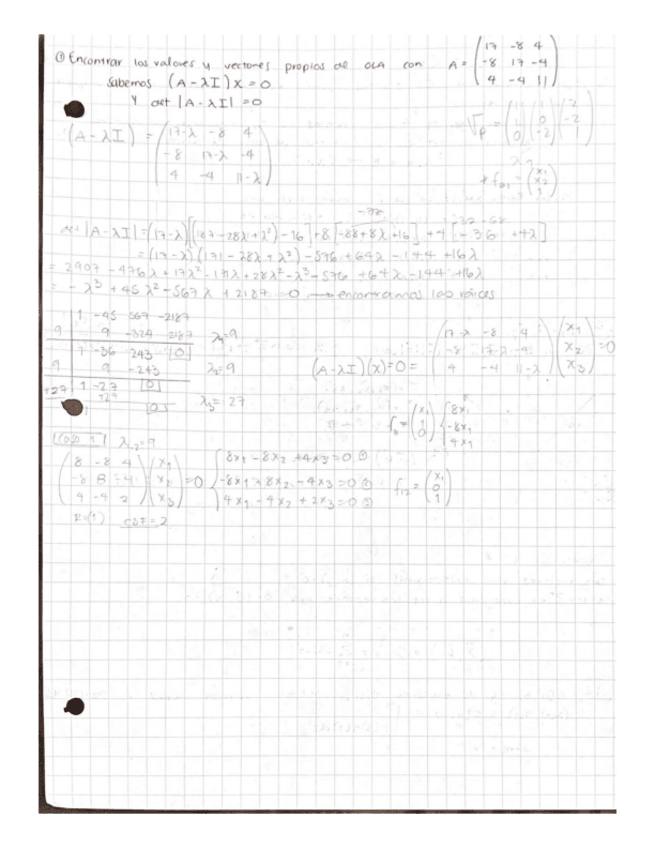 ① Encontrar los valores y vectores propios de OLA con A = (17 -8 4
-8 17 -4
4 -4 11)
Sabemos (A - λI) X = 0
Y det |A - λI| = 0
(A - λI) = (17-λ -8 4
-8 17-λ -4
4 -4 11-λ)
(1 1 0) (1 0 -2) (2 -2 1)
(x₁
x₂
1)
det |A - λI| = (17-λ)[(187 - 28λ + λ²) - 16] + 8[-88 + 8λ + 16] + 4[-36 + 4λ]
= (17-λ)(171 - 28λ + λ²) - 576 + 64λ - 144 + 16λ
= 2907 - 476λ + 17λ² - 171λ + 28λ² - λ³ - 576 + 64λ - 144 + 16λ
= - λ³ + 45λ² - 567λ + 2187 = 0 → encontramos las raíces
1 -45 567 -2187
9 9 -324 2187 λ₁=9
1 -36 -243 0
9 9 -243 λ₂=9
+27 1 -27 0
+27
1 0 λ₃ = 27
(A - λI)(x) = 0 = (17-λ -8 4
-8 17-λ -4
4 -4 11-λ) (x₁
x₂
x₃) = 0
f₁₁ = (x₁
1
0) { 8x₁
-8x₁
4x₁
Caso 1 λ₁,₂=9
(8 -8 4
-8 8 -4
4 -4 2) (x₁
x₂
x₃) = 0
8x₁ - 8x₂ + 4x₃ = 0 ①
-8x₁ + 8x₂ - 4x₃ = 0 ②
4x₁ - 4x₂ + 2x₃ = 0 ③
f₁₂ = (x₁
0
1)